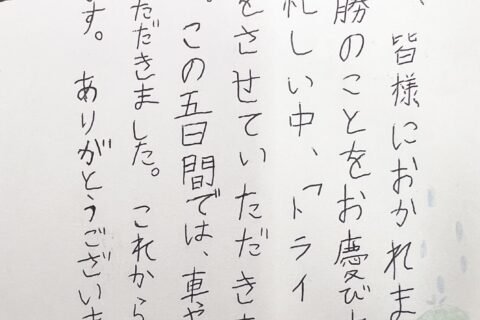 、皆様におかれま
勝のことをお慶び
礼しい中、「トライ
をさせていただき
。この五日間では、車や
ただきました。これから
す。ありがとうござい